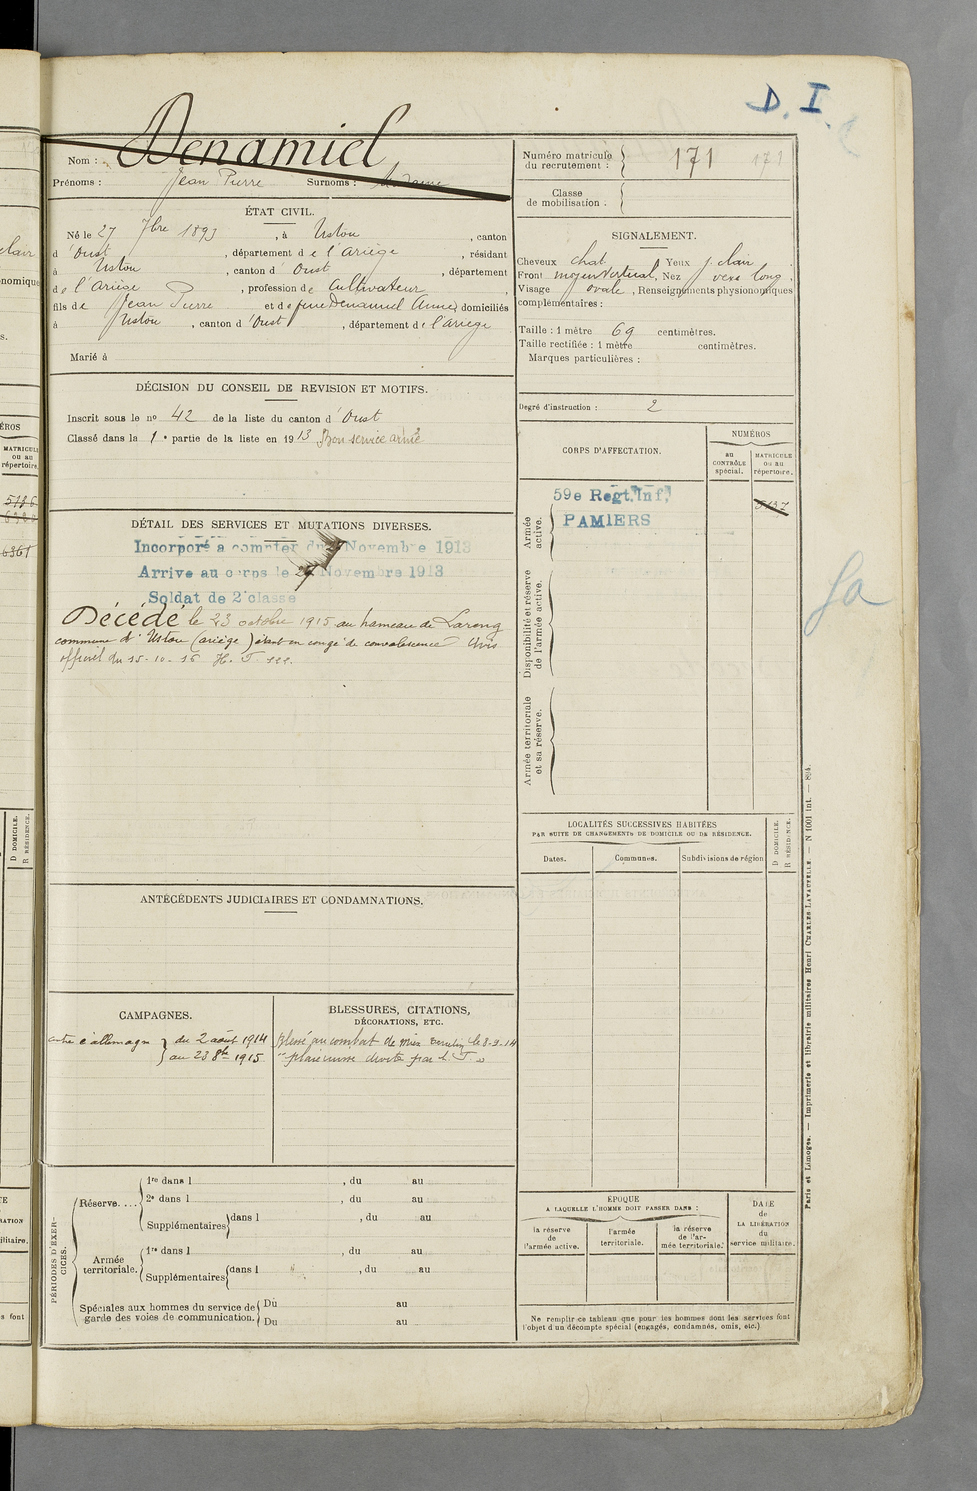 D. I.
Nom : Denamiel
Prénoms : Jean Pierre Surnoms :
ÉTAT CIVIL.
Né le 27 7bre 1893, à Ustou, canton
d'Oust, département de l'Ariège, résidant
à Ustou, canton d'Oust, département
de l'Ariège, profession de Cultivateur,
fils de Jean Pierre et de feue Denamiel Anne, domiciliés
à Ustou, canton d'Oust, département de l'Ariège
Marié à
DÉCISION DU CONSEIL DE REVISION ET MOTIFS.
Inscrit sous le n° 42 de la liste du canton d'Oust
Classé dans la 1e partie de la liste en 1913 Bon service armé
DÉTAIL DES SERVICES ET MUTATIONS DIVERSES.
Incorporé à compter du 27 Novembre 1913
Arrivé au corps le 27 Novembre 1913
Soldat de 2e classe
Décédé le 23 octobre 1915 au hameau de
commune d'Ustou (Ariège) étant en congé de convalescence Avis
officiel du
ANTÉCÉDENTS JUDICIAIRES ET CONDAMNATIONS.
CAMPAGNES.
contre l'allemagne } du 2 août 1914
au 23 8bre 1915
BLESSURES, CITATIONS,
DÉCORATIONS, ETC.
Blessé au combat de le 8-9-14
PÉRIODES D'EXERCICES.
Réserve....
1re dans l , du au
2e dans l , du au
Supplémentaires dans l , du au
Armée territoriale.
1re dans l , du au
Supplémentaires dans l , du au
Spéciales aux hommes du service de
garde des voies de communication.
Du au
Du au
Numéro matricule
du recrutement : 171 171
Classe
de mobilisation :
SIGNALEMENT.
Cheveux chat. Yeux j. clair
Front moyen vertical, Nez long.
Visage ovale, Renseignements physionomiques
complémentaires :
Taille : 1 mètre 69 centimètres.
Taille rectifiée : 1 mètre centimètres.
Marques particulières :
Degré d'instruction : 2
CORPS D'AFFECTATION.
NUMÉROS
au
CONTRÔLE
spécial.
MATRICULE
ou au
répertoire.
Armée
active.
59e Regt. Inf.
PAMIERS
Disponibilité et réserve
de l'armée active.
Armée territoriale
et sa réserve.
LOCALITÉS SUCCESSIVES HABITÉES
PAR SUITE DE CHANGEMENTS DE DOMICILE OU DE RÉSIDENCE.
Dates.
Communes.
Subdivisions de région
D DOMICILE.
R RÉSIDENCE.
ÉPOQUE
A LAQUELLE L'HOMME DOIT PASSER DANS :
la réserve
de
l'armée active.
l'armée
territoriale.
la réserve
de l'ar-
mée territoriale.
DATE
de
LA LIBÉRATION
du
service militaire.
Ne remplir ce tableau que pour les hommes dont les services font
l'objet d'un décompte spécial (engagés, condamnés, omis, etc.)
Paris et Limoges. — Imprimerie et librairie militaires Henri CHARLES-LAVAUZELLE. — N 1001 int. — 894.